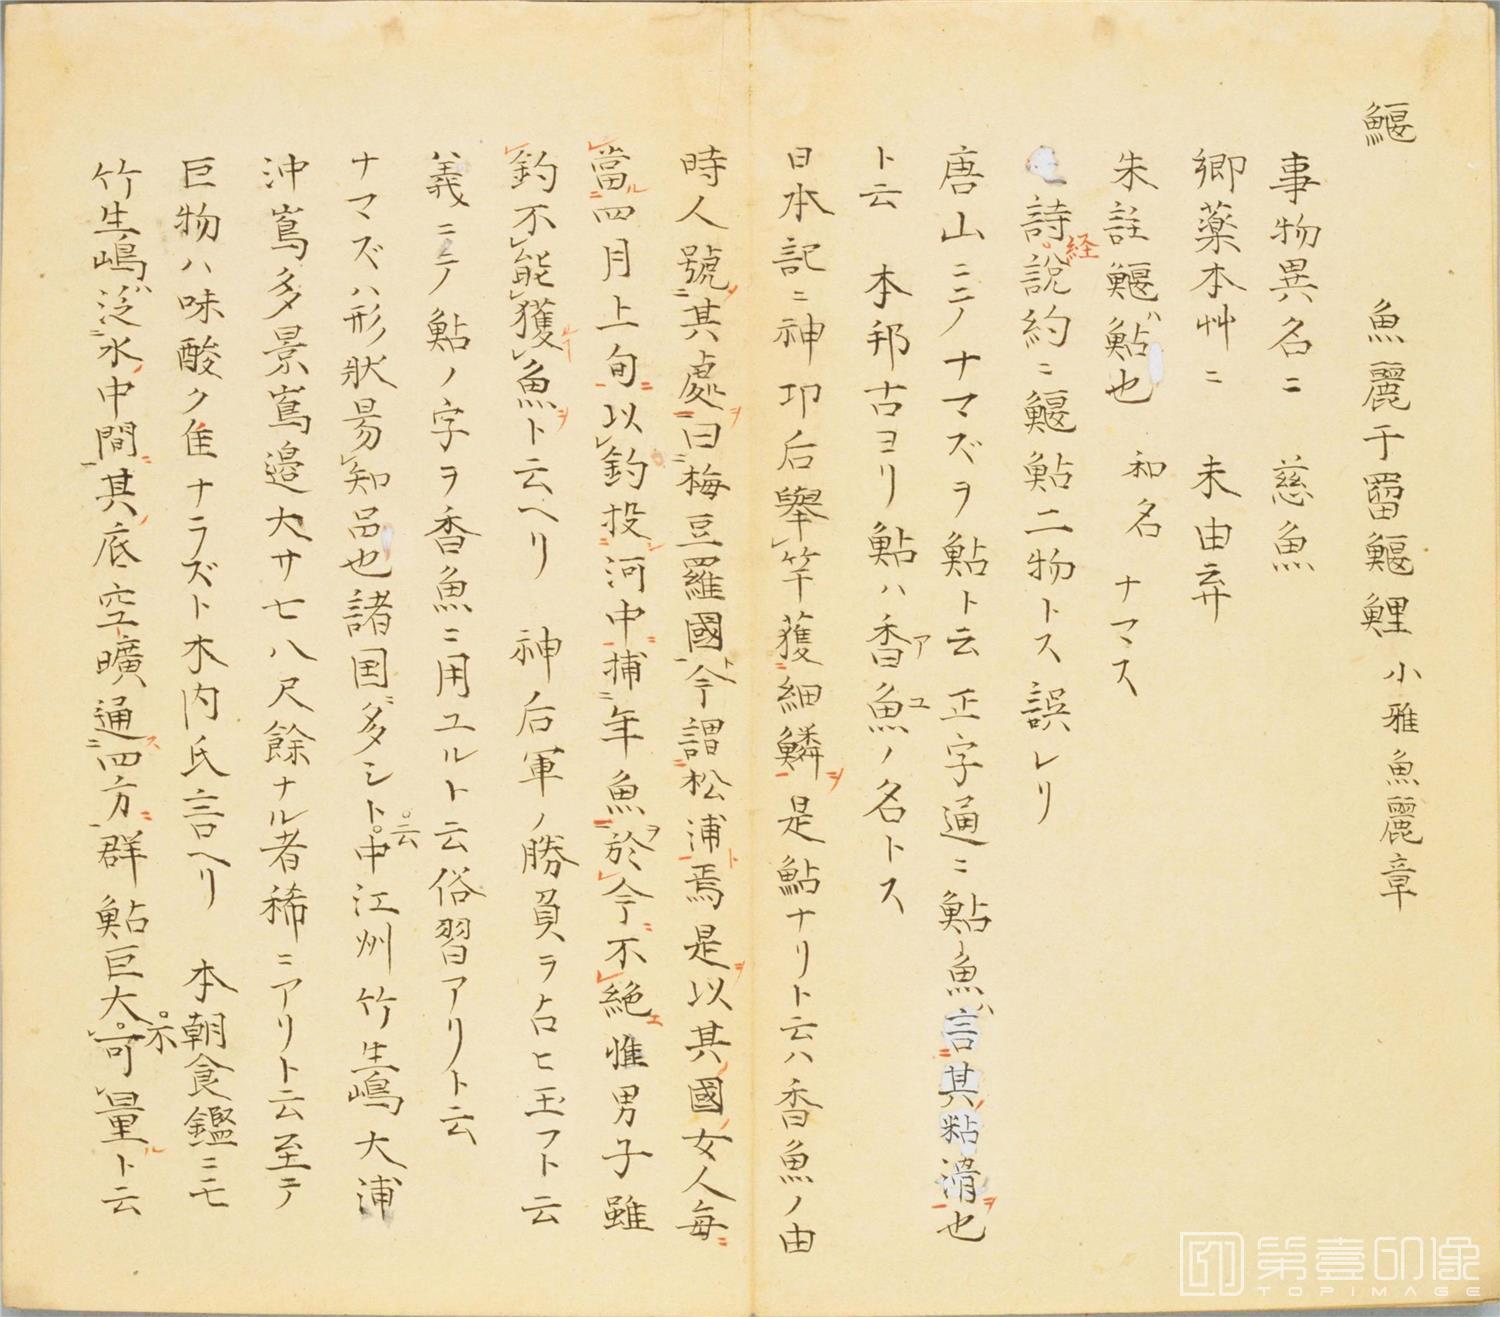 鰋　魚麗于罶鰋鯉 小雅魚麗章
事物異名ニ　慈魚
郷薬本艸ニ　未由弃
朱註鰋ハ鮎也　和名 ナマス
詩経説約ニ鰋鮎二物トス誤レリ
唐山ニテノナマズヲ鮎ト云正字通ニ鮎ノ魚ハ言其粘滑ヲ也
ト云　本邦古ヨリ鮎ハ香魚アユノ名トス
日本記ニ神功后舉竿獲細鱗ヲ是鮎ナリト云ハ香魚ノ由
時人號其處ヲ曰梅豆羅國ト今謂松浦ト焉是以其國女人毎
當四月上旬以釣投河中捕年魚ヲ於今不絶惟男子雖
釣不能獲魚ヲト云ヘリ　神后軍ノ勝負ヲ占ヒ玉フト云
義ニテ鮎ノ字ヲ香魚ニ用ユルト云俗習アリト云
ナマズハ形狀昜知品也諸国ニ多シト云中江州竹生嶋大浦
沖嶌多景嶌邉大サ七八尺餘ナル者稀ニアリト云至テ
巨物ハ味酸ク佳ナラズト木内氏言ヘリ　本朝食鑑ニモ
竹生嶋ハ泛水中間其底空曠通四方群鮎巨大不可量ト云
第壹印像
TOPIMAGE